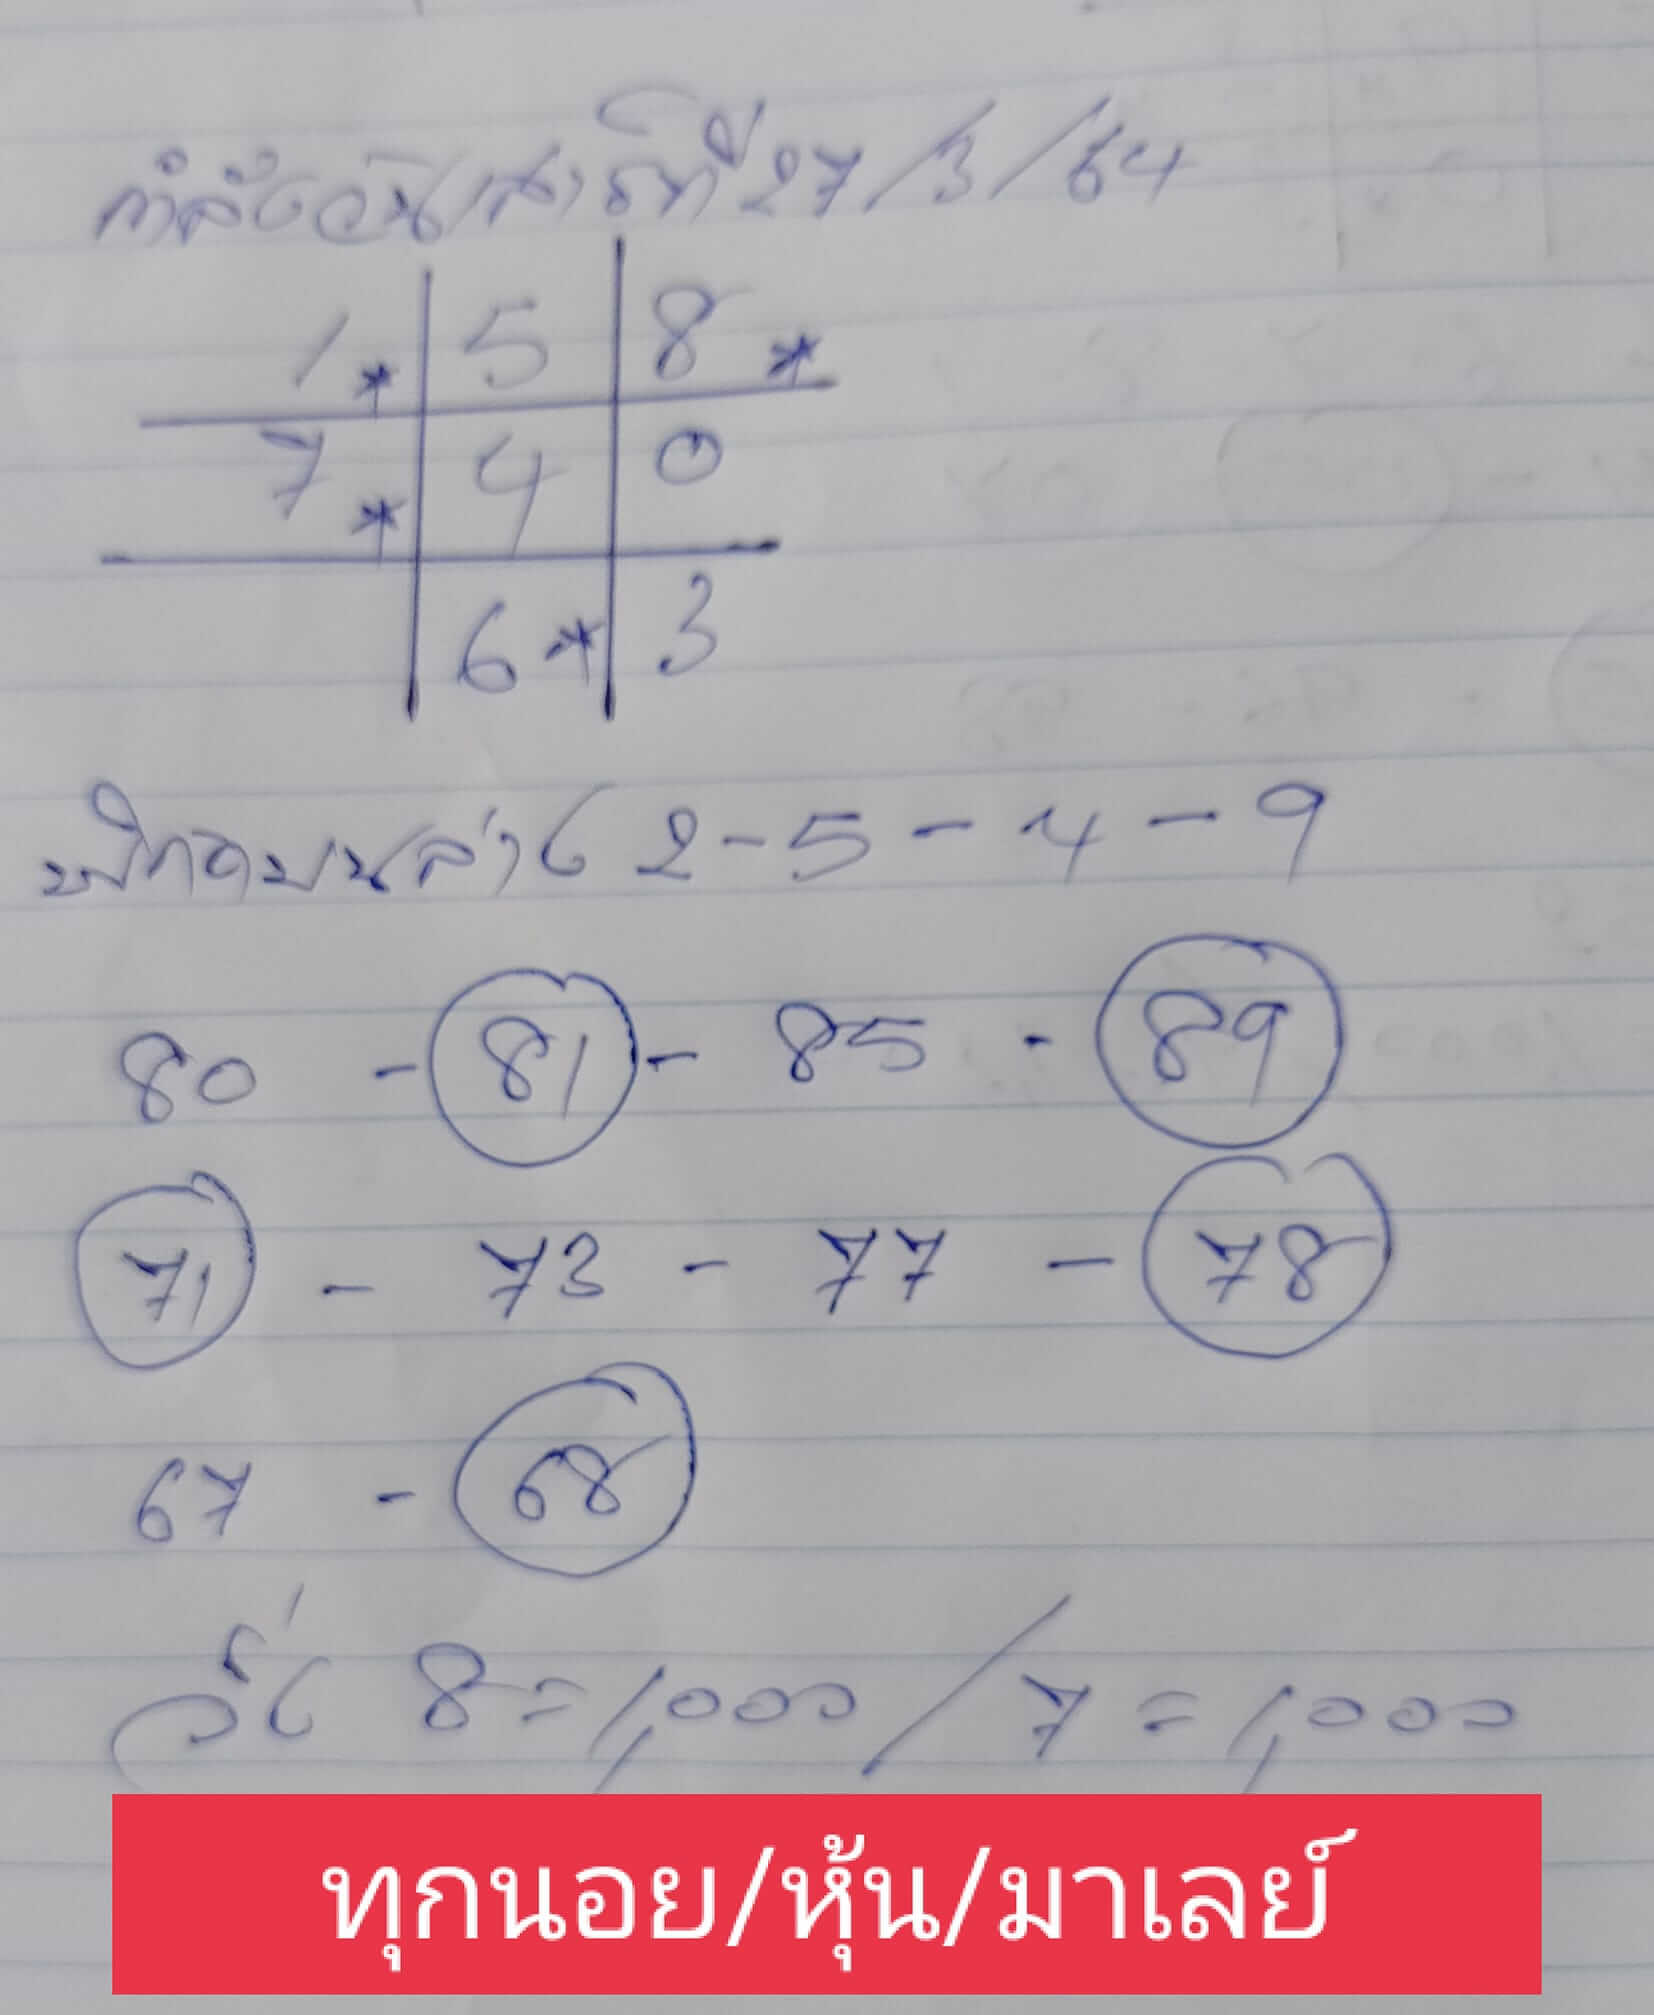 กำลังวันเสาร์ที่ 27/3/64
1* 5 8*
7* 4 0
6* 3
พิกัดบนล่าง 2-5-4-9
80 - 81 - 85 - 89
71 - 73 - 77 - 78
67 - 68
วิ่ง 8=1,000/7=1,000
ทุกนอย/หุ้น/มาเลย์